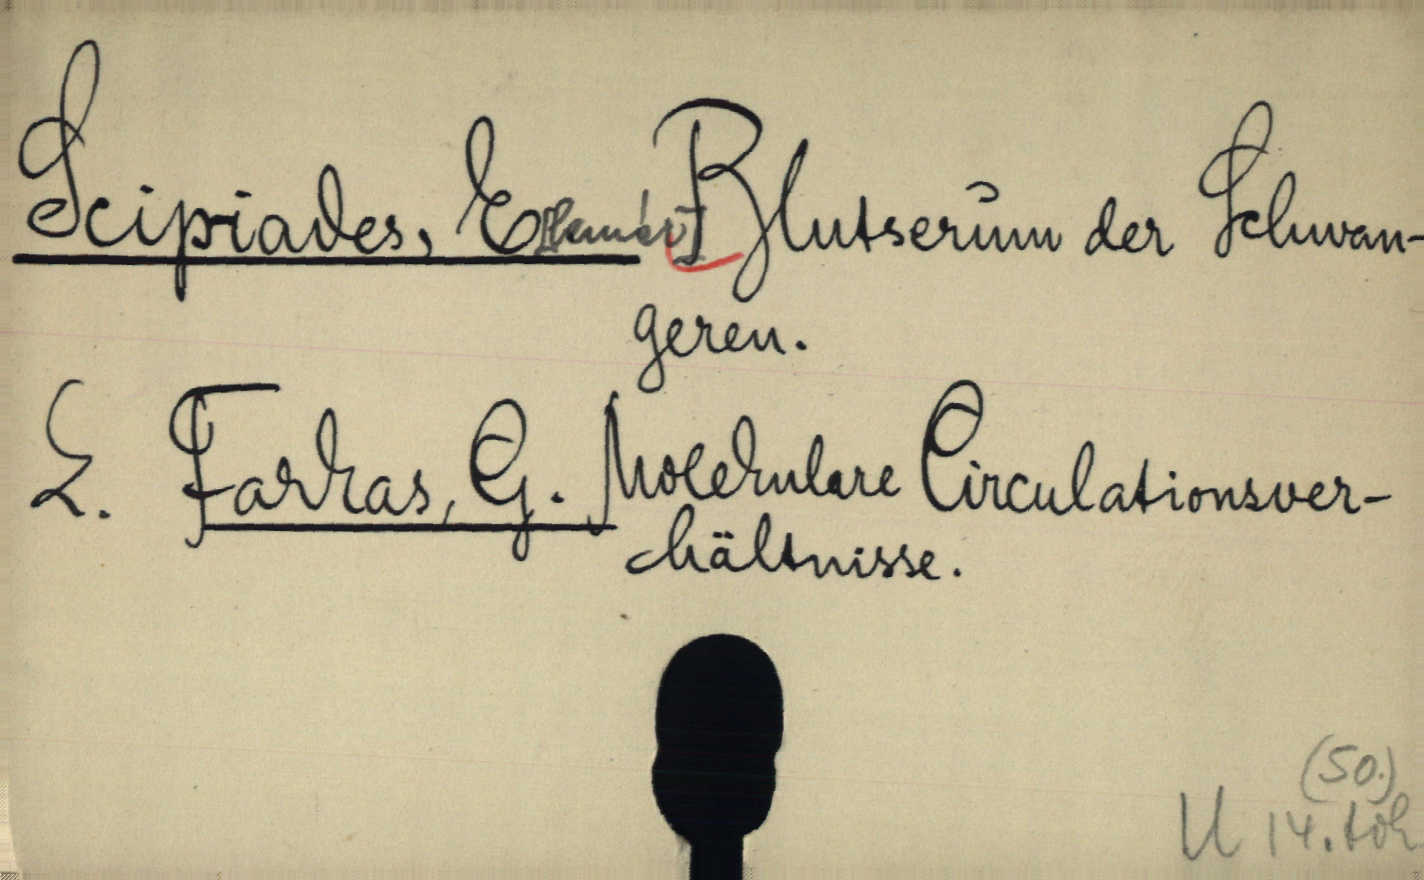 Scipiades, E[lemér] Blutserum der Schwan-
geren.
L. Farkas, G. Molekulare Circulationsver-
hältnisse.
(50.)
U 14. tök